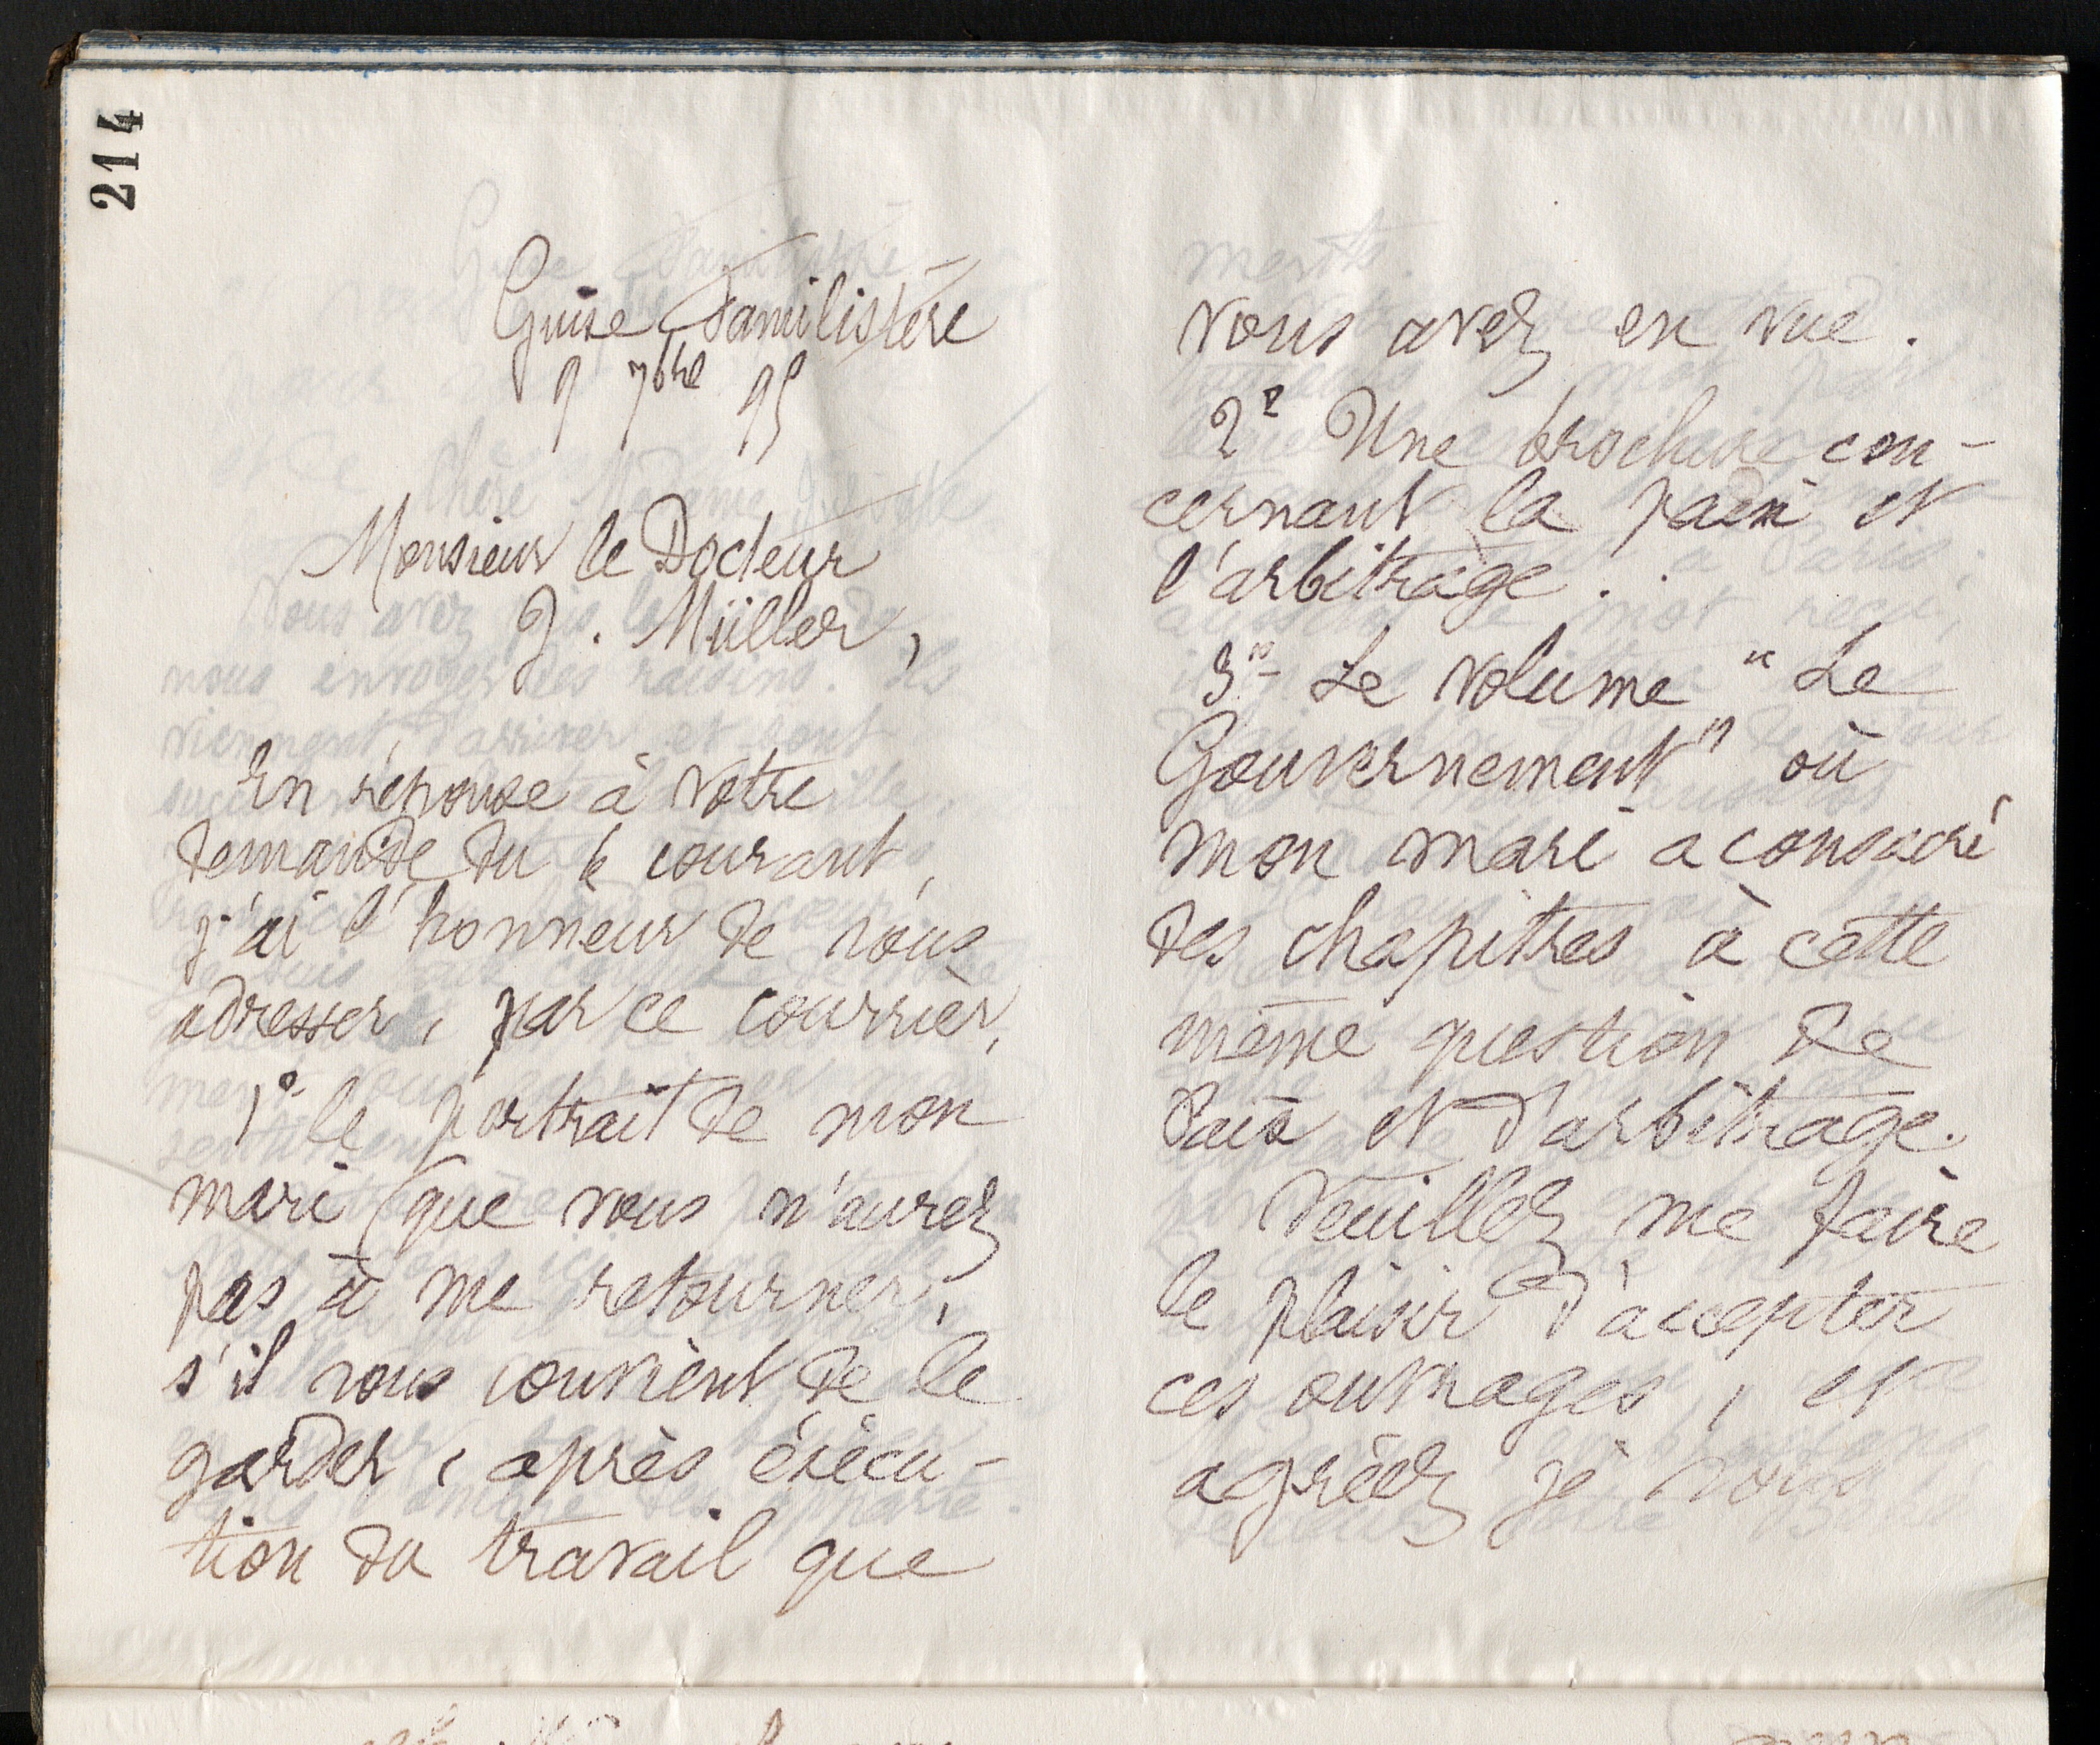 214
Guise Familistère
9 7bre 95
Monsieur le Docteur
J. Müller,
En réponse à votre
demande du 6 courant,
j'ai l'honneur de vous
adresser, par ce courrier,
1° le portrait de mon
mari (que vous n'aurez
pas à me retourner,
s'il vous convient de le
garder, après éxécu-
tion du travail que
vous avez en vue.
2° Une brochure con-
cernant la paix et
l'arbitrage.
3° Le volume "Le
Gouvernement" où
mon mari a consacré
des chapitres à cette
même question de
Paix et d'arbitrage.
Veuillez me faire
le plaisir d'accepter
ces ouvrages, et
agréez je vous